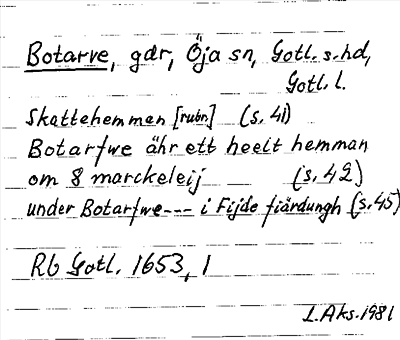 Botarve, gdr, Öja sn, Gotl. s. hd,
Gotl. l.
Skattehemman [rubr.] (s. 41)
Botarfwe ähr ett heelt hemman
om 8 marckeleij (s. 42)
under Botarfwe--- i Fijde fiärdungh (s. 45)
Rb Gotl. 1653, 1
L.Aks. 1981